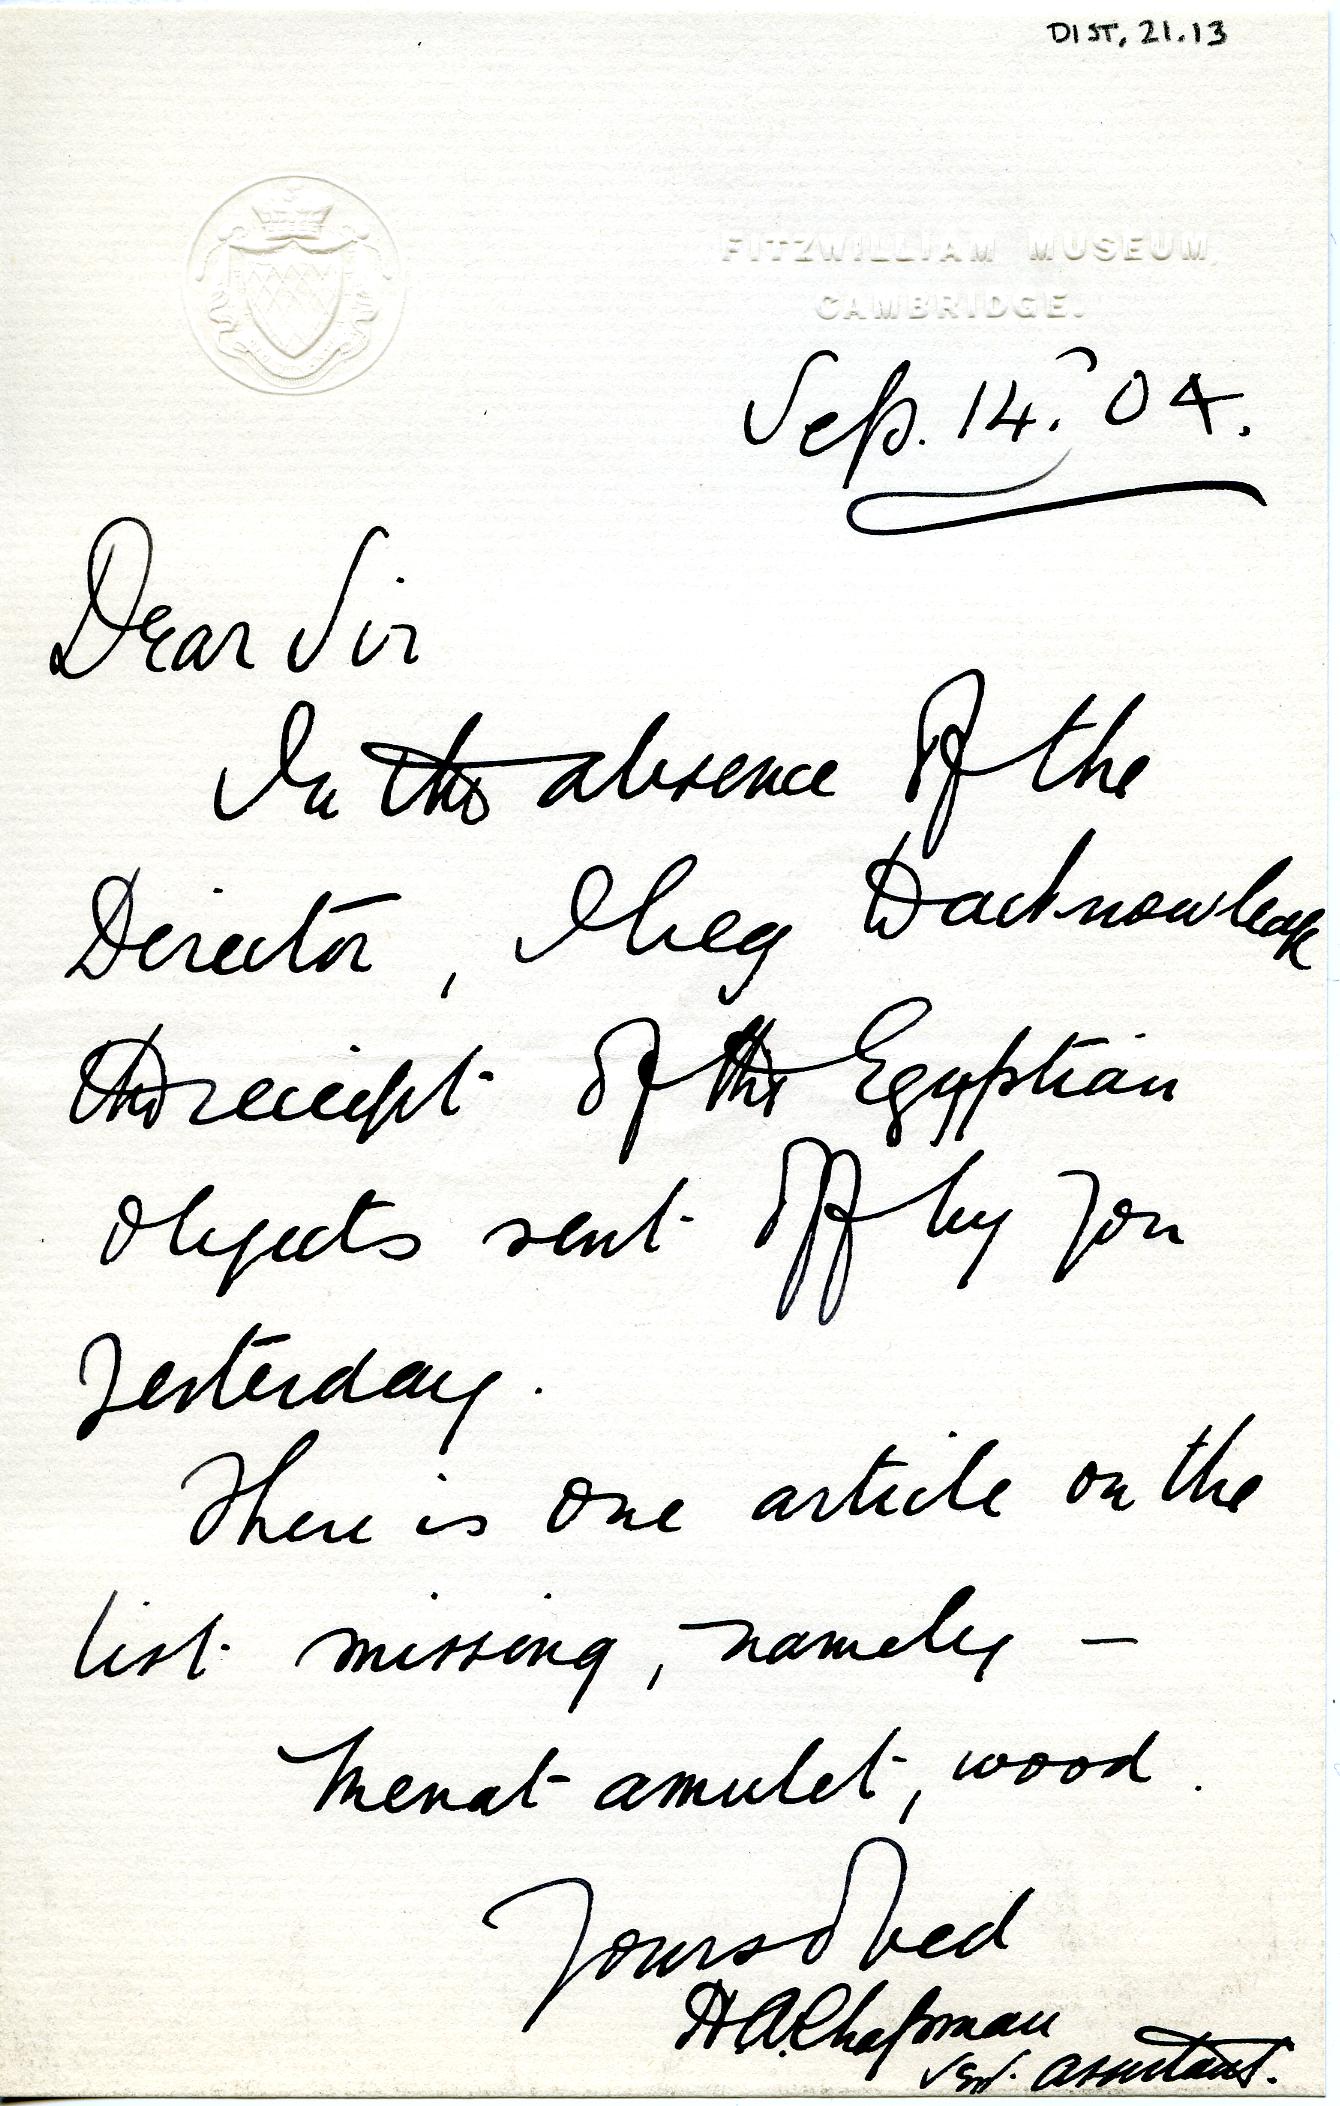 DIST. 21.13
FITZWILLIAM MUSEUM,
CAMBRIDGE.
Sep. 14. '04.
Dear Sir
In the absence of the
Director, I beg to acknowledge
the receipt of the Egyptian
objects sent off by you
yesterday.
There is one article on the
list missing, namely —
Menat amulet, wood.
Yours obed
H. A. Chapman
Assistant.